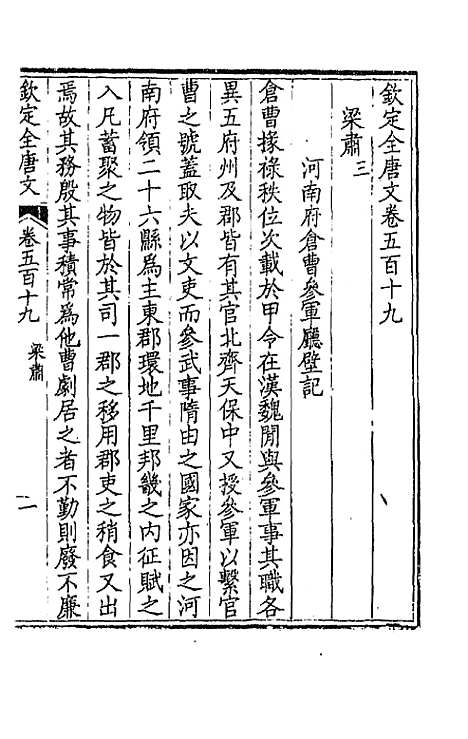 欽定全唐文卷五百十九
梁肅三
河南府倉曹參軍廳壁記
倉曹掾祿秩位次載於甲令在漢魏閒與參軍事其職各
異五府州及郡皆有其官北齊天保中又授參軍以繫官
曹之號蓋取夫以文吏而參武事隋由之國家亦因之河
南府領二十六縣爲主東郡環地千里邦畿之內征賦之
入凡蓄聚之物皆於其司一郡之移用郡吏之稍食又出
焉故其務殷其事積常爲他曹劇居之者不勤則廢不廉
欽定全唐文 卷五百十九 梁肅 一